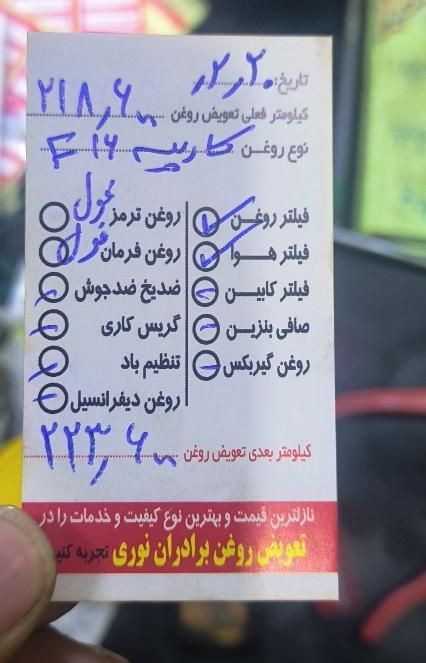 تاریخ: ۲٫۲٫۲۰
کیلومتر فعلی تعویض روغن ۲۱۸٫۶۰۰
نوع روغن کاسپین
فیلتر روغن ✓ روغن ترمز
فیلتر هوا ✓ روغن فرمان
فیلتر کابین - ضدیخ ضدجوش -
صافی بنزین - گریس کاری -
روغن گیربکس - تنظیم باد -
روغن دیفرانسیل -
کیلومتر بعدی تعویض روغن ۲۲۳٫۶۰۰
نازلترین قیمت و بهترین نوع کیفیت و خدمات را در
تعویض روغن برادران نوری تجربه کنی